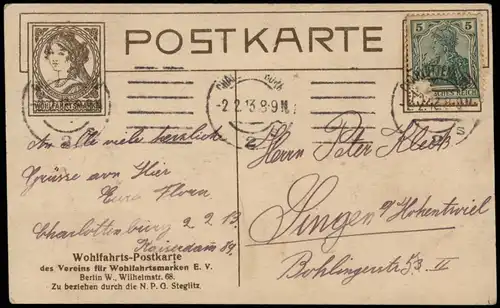 POSTKARTE
WOHLFAHRTSMARKEN
5 5
DEUTSCHES REICH
CHARLOTTENBURG
-2.2.13.8-9N.
2
An alle viele herzliche
Grüsse von Hier
Eure Flora
Charlottenburg 2 2 13.
Kaiserdam 89.
Herrn Peter Kleck
Singen a/Hohentwiel
Bohlingerstr. 53. II
Wohlfahrts-Postkarte
des Vereins für Wohlfahrtsmarken E. V.
Berlin W., Wilhelmstr. 68.
Zu beziehen durch die N. P. G. Steglitz.